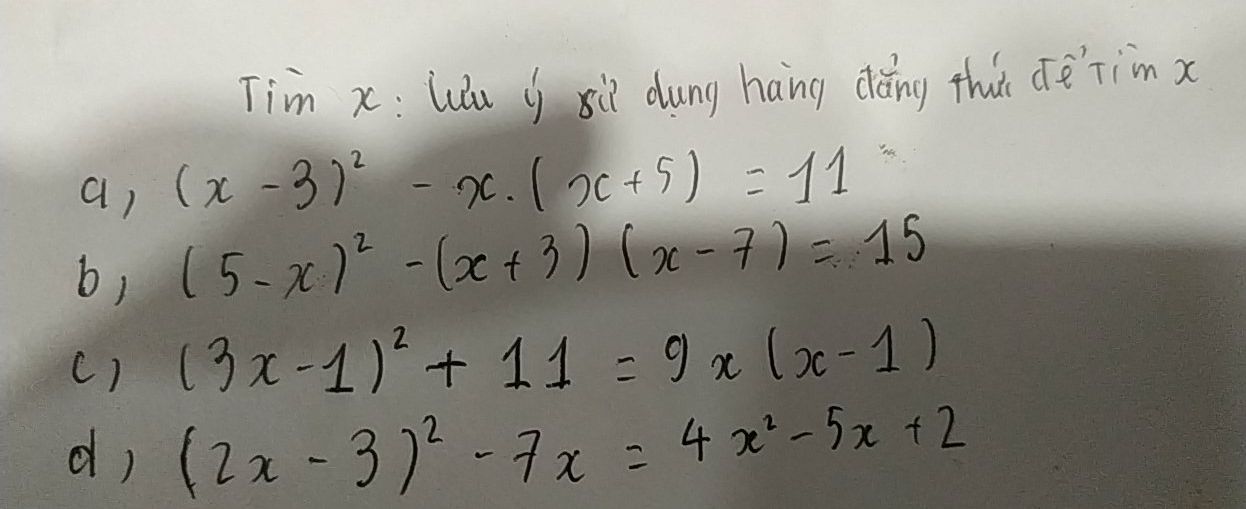 Tìm x: lưu ý sử dụng hằng đẳng thức để tìm x
a, (x - 3)² - x.(x+5) = 11
b, (5-x)² -(x+3)(x-7) = 15
c, (3x-1)² + 11 = 9x(x-1)
d, (2x-3)² - 7x = 4x² - 5x + 2